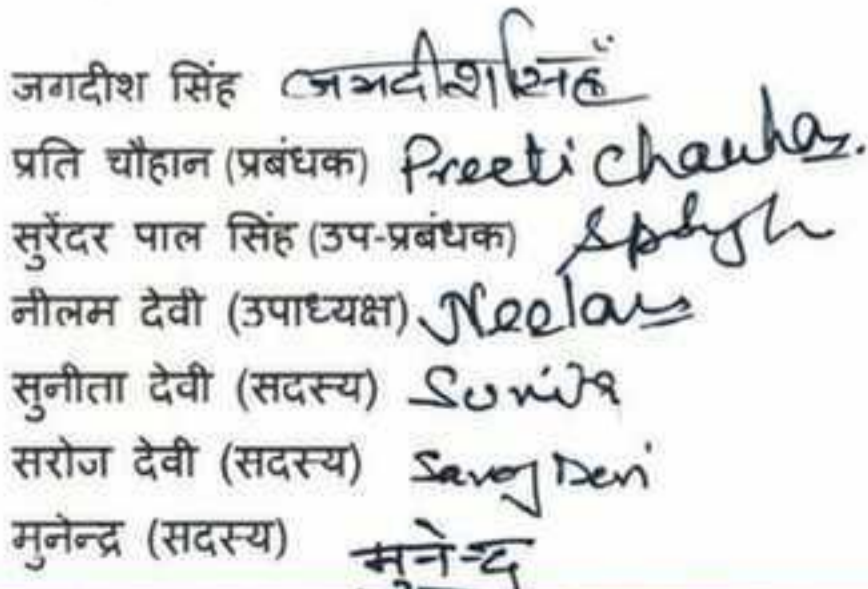 जगदीश सिंह जगदीश सिंह
प्रति चौहान (प्रबंधक) Preeti Chauhan.
सुरेंदर पाल सिंह (उप-प्रबंधक) Spsingh
नीलम देवी (उपाध्यक्ष) Neelam
सुनीता देवी (सदस्य) Sunita
सरोज देवी (सदस्य) Saroj Devi
मुनेन्द्र (सदस्य) मुनेन्द्र